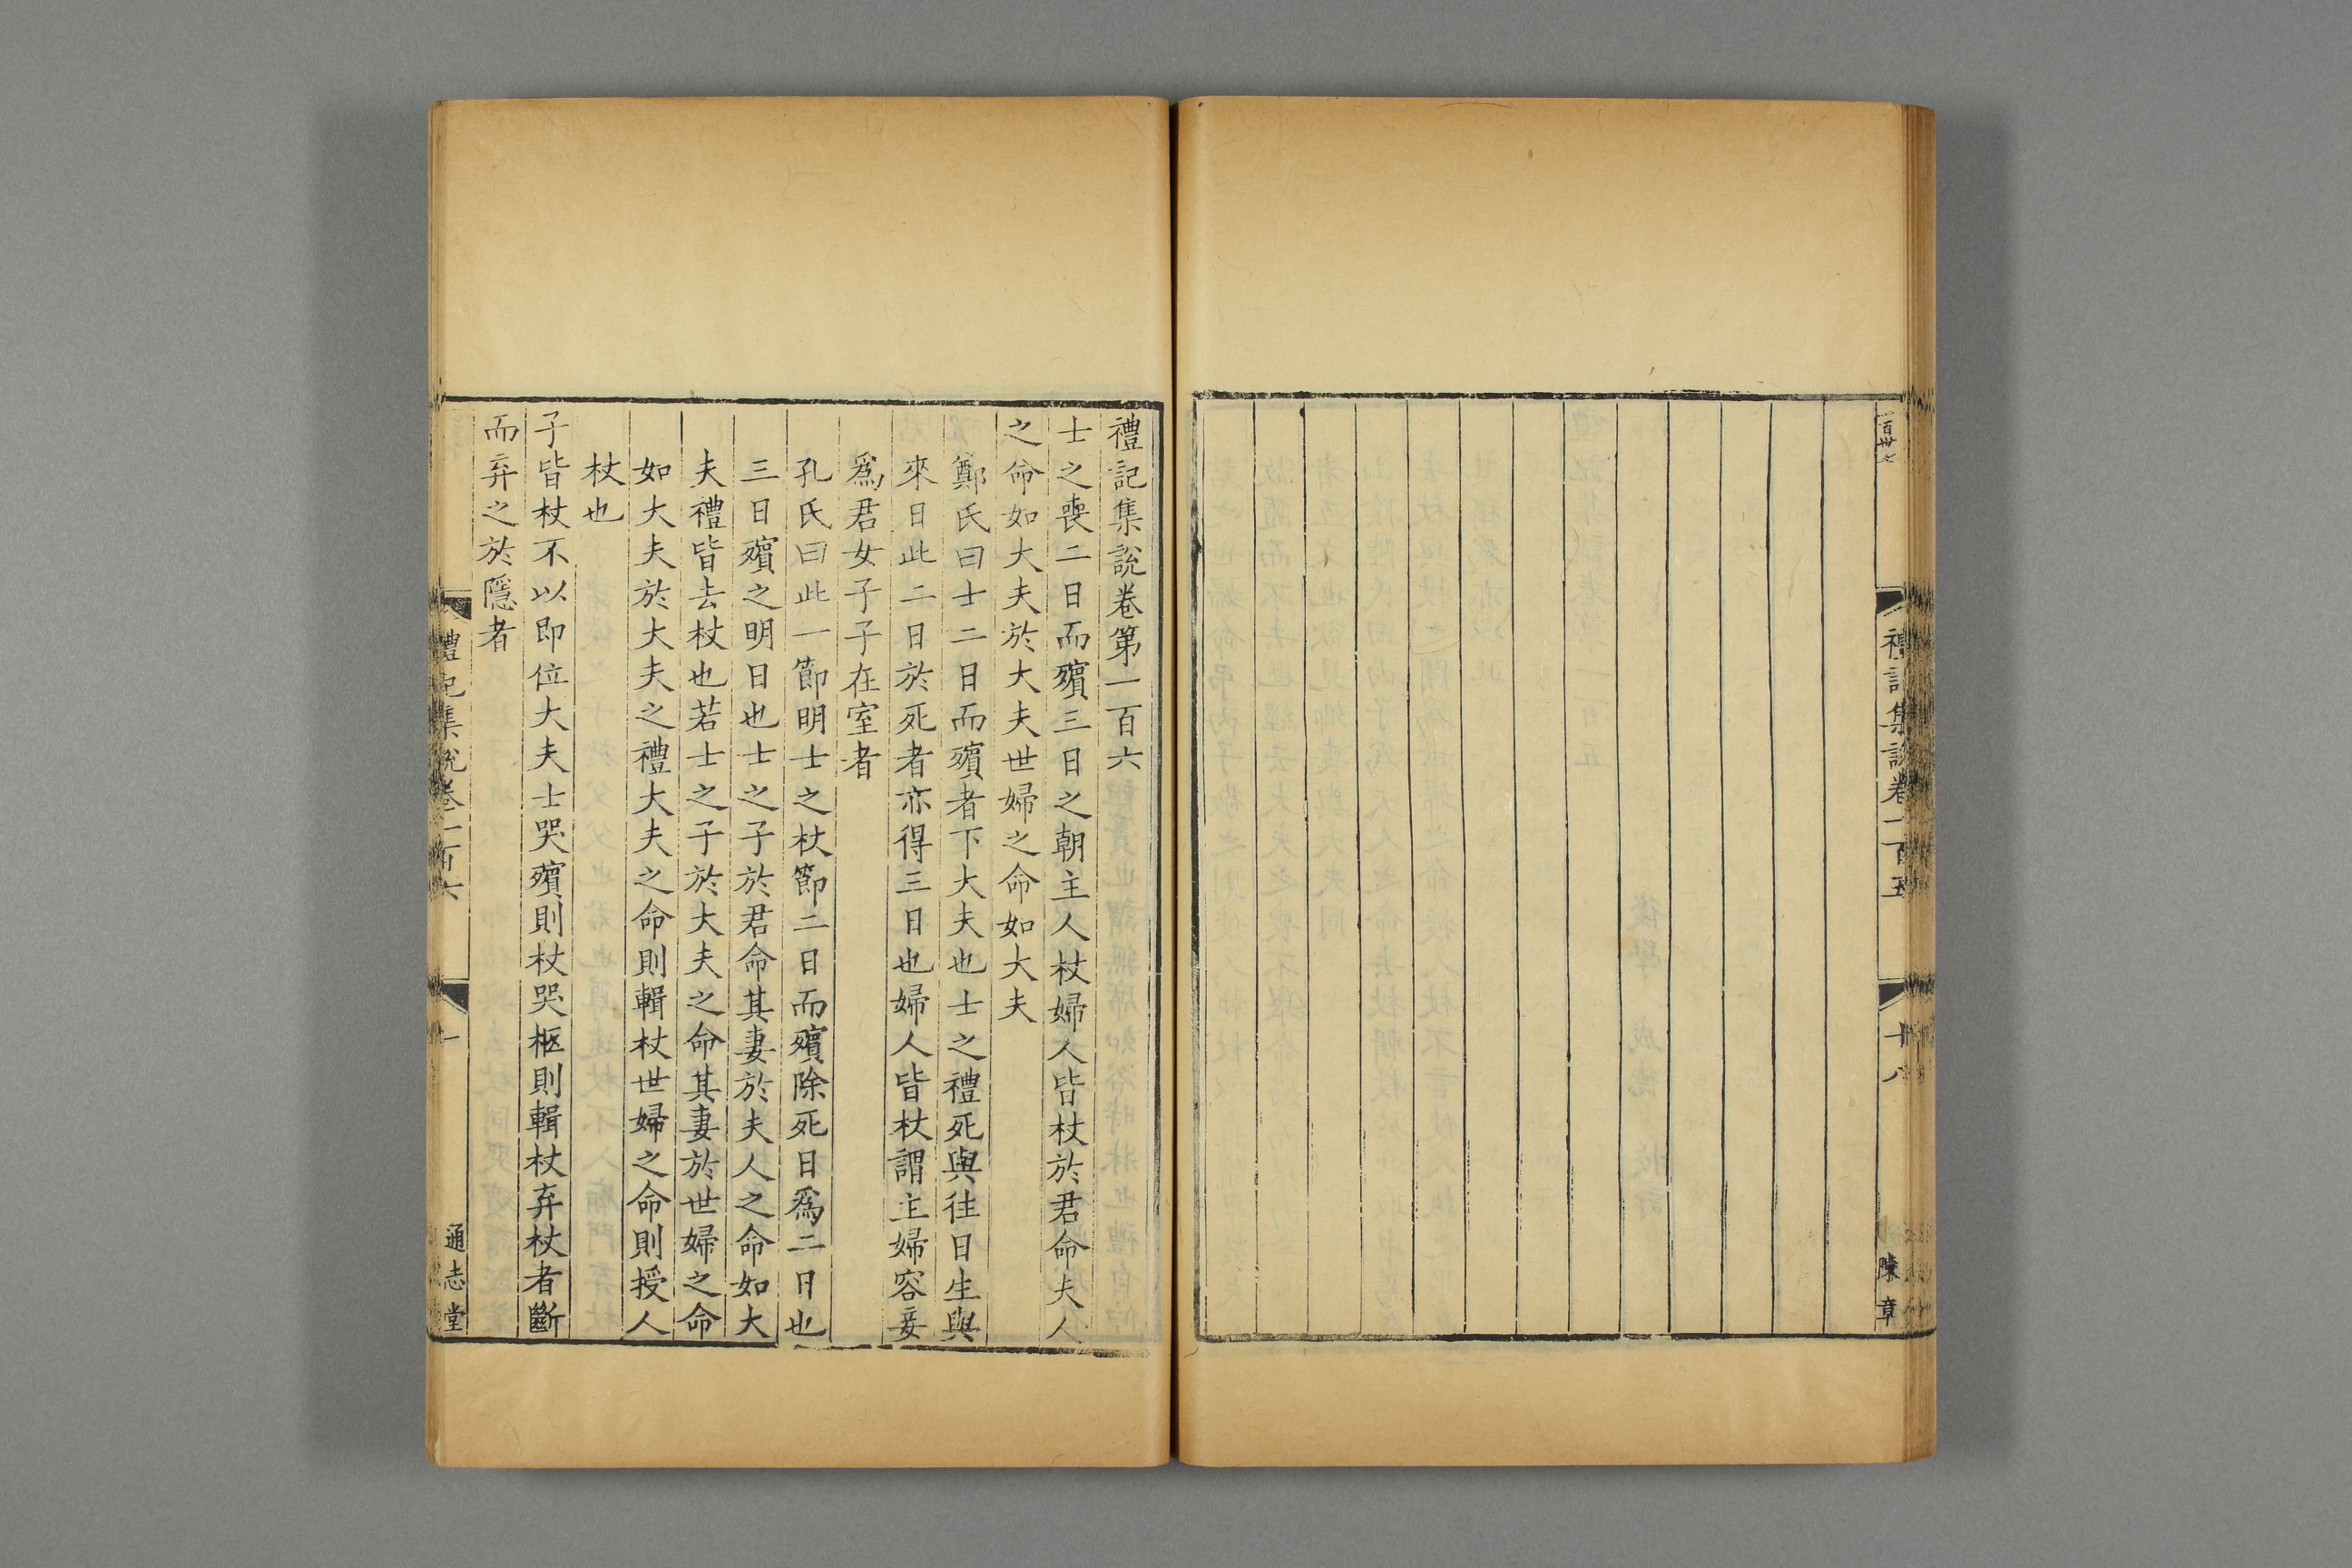 禮記集說卷一百五
十八
陳章
禮記集說卷第一百六
士之喪二日而殯三日之朝主人杖婦人皆杖於君命夫人
之命如大夫於大夫世婦之命如大夫
鄭氏曰士二日而殯者下大夫也士之禮死與往日生與
來日此二日於死者亦得三日也婦人皆杖謂主婦容妾
爲君女子子在室者
孔氏曰此一節明士之杖節二日而殯除死日爲二日也
三日殯之明日也士之子於君命其妻於夫人之命如大
夫禮皆去杖也若士之子於大夫之命其妻於世婦之命
如大夫於大夫之禮大夫之命則輯杖世婦之命則授人
杖也
子皆杖不以即位大夫士哭殯則杖哭柩則輯杖弃杖者斷
而弃之於隱者
禮記集說卷一百六
一
通志堂